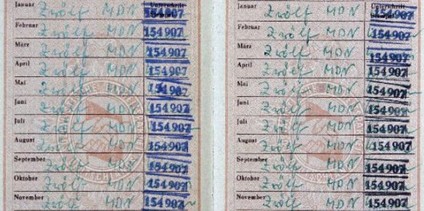 Januar Zwölf MDN 154907
Februar Zwölf MDN 154907
März Zwölf MDN 154907
April Zwölf MDN 154907
Mai Zwölf MDN 154907
Juni Zwölf MDN 154907
Juli Zwölf MDN 154907
August Zwölf MDN 154907
September Zwölf MDN 154907
Oktober Zwölf MDN 154907
November Zwölf MDN 154907
Januar Zwölf MDN 154907
Februar Zwölf MDN 154907
März Zwölf MDN 154907
April Zwölf MDN 154907
Mai Zwölf MDN 154907
Juni Zwölf MDN 154907
Juli Zwölf MDN 154907
August Zwölf MDN 154907
September Zwölf MDN 154907
Oktober Zwölf MDN 154907
November Zwölf MDN 154907